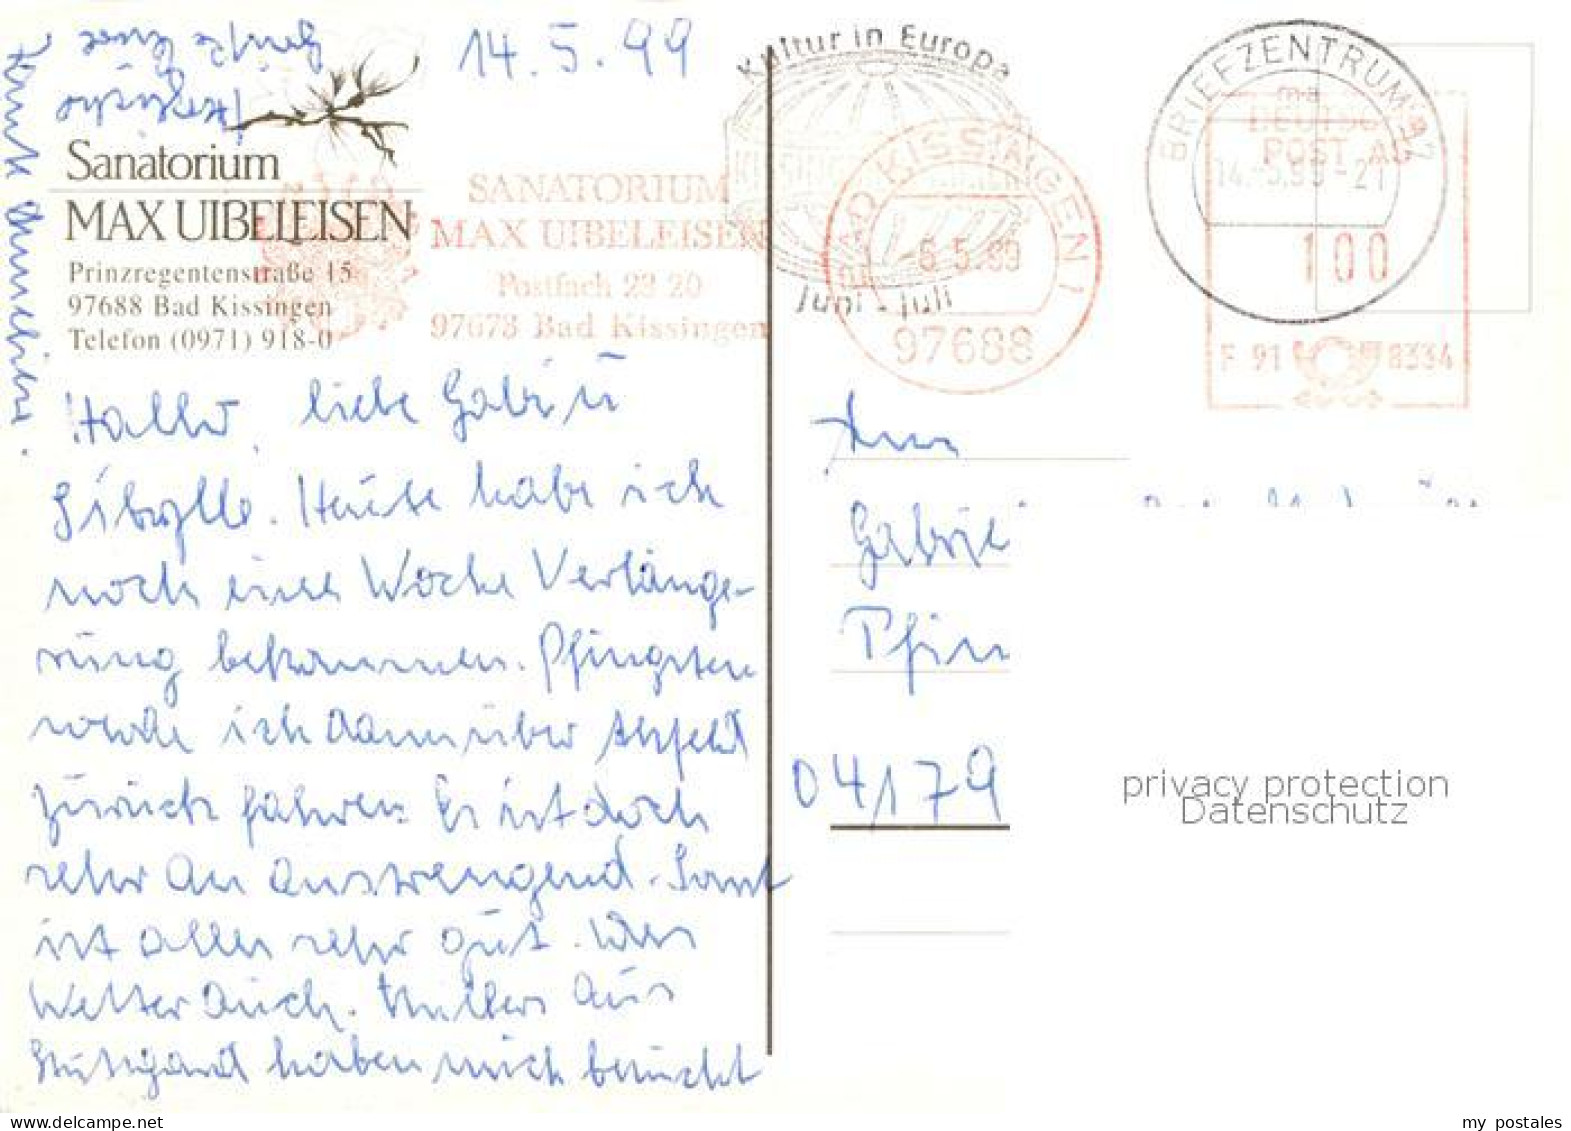 14.5.99
Sanatorium
MAX UIBELEISEN
Prinzregentenstraße 15
97688 Bad Kissingen
Telefon (0971) 918-0
SANATORIUM
MAX UIBELEISEN
Postfach 22 20
97673 Bad Kissingen
Kultur in Europa
Juni - Juli
BAD KISSINGEN 1
6.5.99
97688
BRIEFZENTRUM 97
14.-5.99-21
ma
DEUTSCHE
POST AG
100
F 91 8334
Hallo, liebe Gabi ü
Sibylle. Heute habe ich
noch eine Woche Verlänge-
rung bekommen. Pfingsten
werde ich dann über
zurück fahren. Es ist doch
sehr anstrengend. Sonst
ist alles sehr gut. Das
Wetter auch. aus
Stuttgart haben mich besucht
Herzliche
Grüße Eure
Gabriel
Pfin
04179
privacy protection
Datenschutz
my-postales.com
my postales